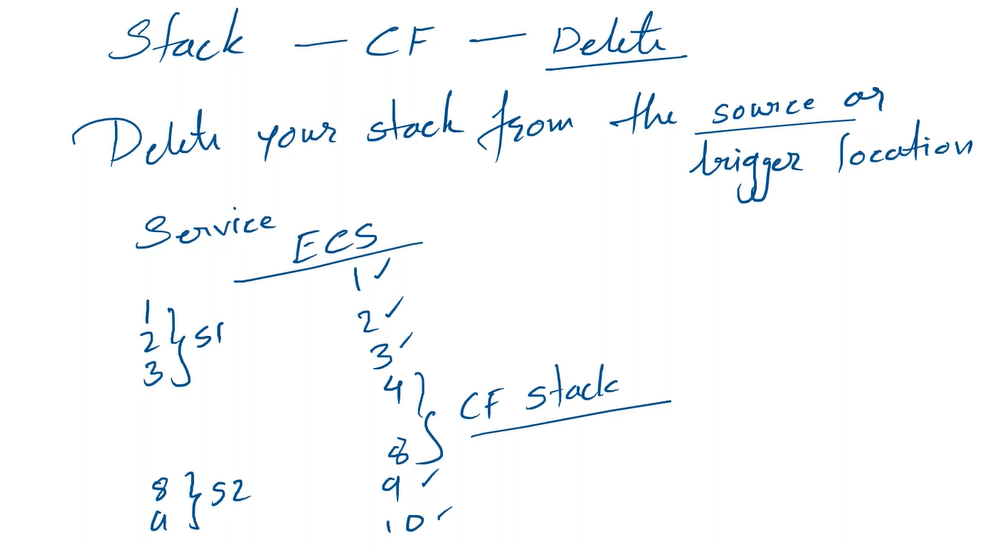 Stack — CF — Delete
Delete your stack from the source or
trigger location
Service ECS
1 ✓
1
2 } S1
3
2 ✓
3 ✓
4 } CF stack
8
8 } S2
9
9 ✓
10 ✓